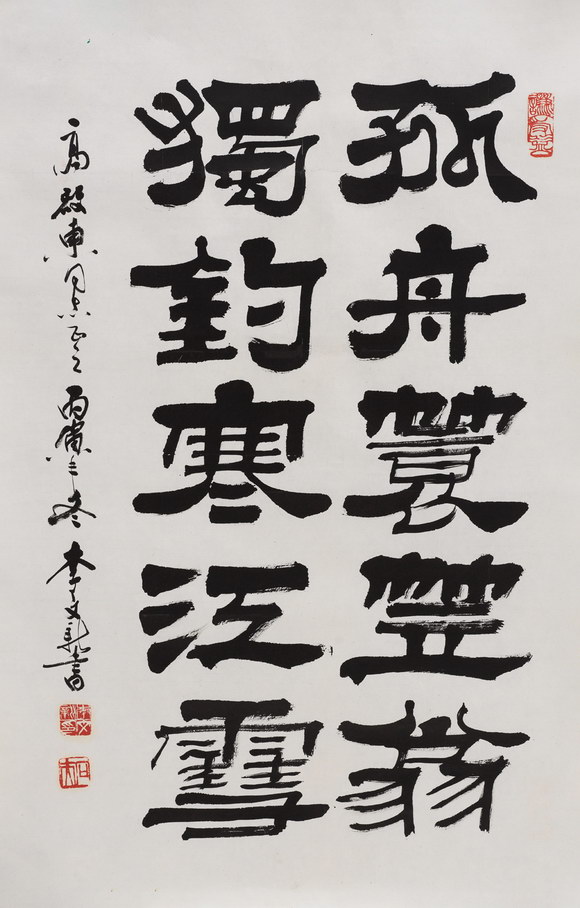 孤舟簑笠翁
獨釣寒江雪
高啟東同志正之 丙寅之冬 李文新書